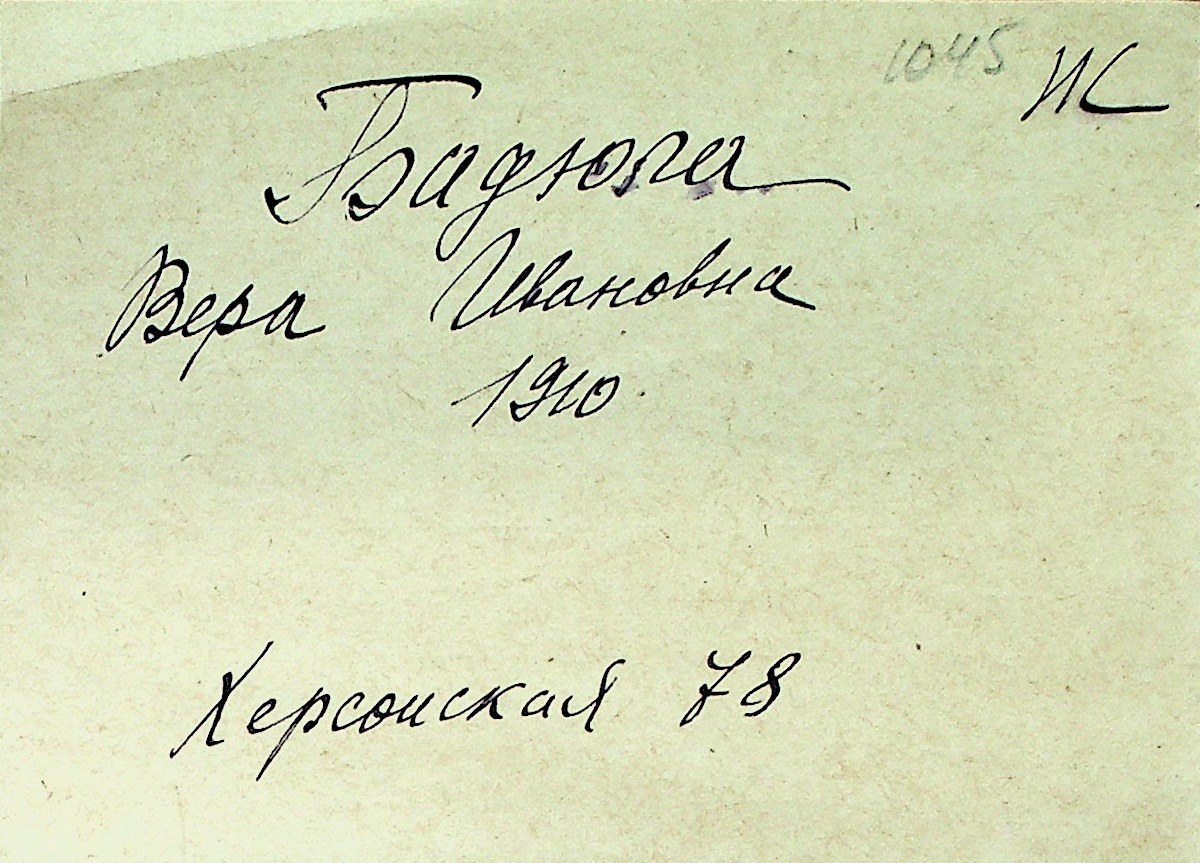 1045 Ж
Бадюга
Вера Ивановна
1910.
Херсонская 78